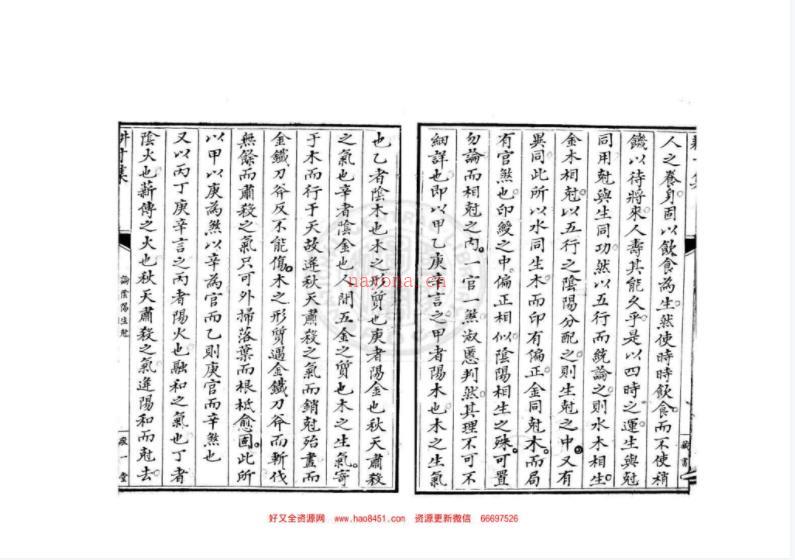 人之養身固以飲食為生然使時時飲食而不使稍
饑以待將來人壽其能久乎是以四時之運生與尅
同用尅與生同功然以五行而統論之則水木相生
金木相尅以五行之陰陽分配之則生尅之中又有
異同此所以水同生木而印有偏正金同尅木而局
有官煞也印綬之中偏正相似陰陽相生之殊可置
勿論而相尅之內一官一煞淑慝判然其理不可不
細詳也即以甲乙庚辛言之甲者陽木也木之生氣
也乙者陰木也木之形質也庚者陽金也秋天肅殺
之氣也辛者陰金也人間五金之質也木之生氣寄
于木而行于天故逢秋天肅殺之氣而銷尅殆盡而
金鐵刀斧反不能傷木之形質遇金鐵刀斧而斬伐
無餘而肅殺之氣只可外掃落葉而根柢愈固此所
以甲以庚為煞以辛為官而乙則庚官而辛煞也
又以丙丁庚辛言之丙者陽火也融和之氣也丁者
陰火也薪傳之火也秋天肅殺之氣逢陽和而尅去
論陰陽生尅
nayona.cn
好又全资源网 www.hao8451.com 资源更新微信 66697526